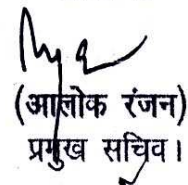 (आलोक रंजन)
प्रमुख सचिव।